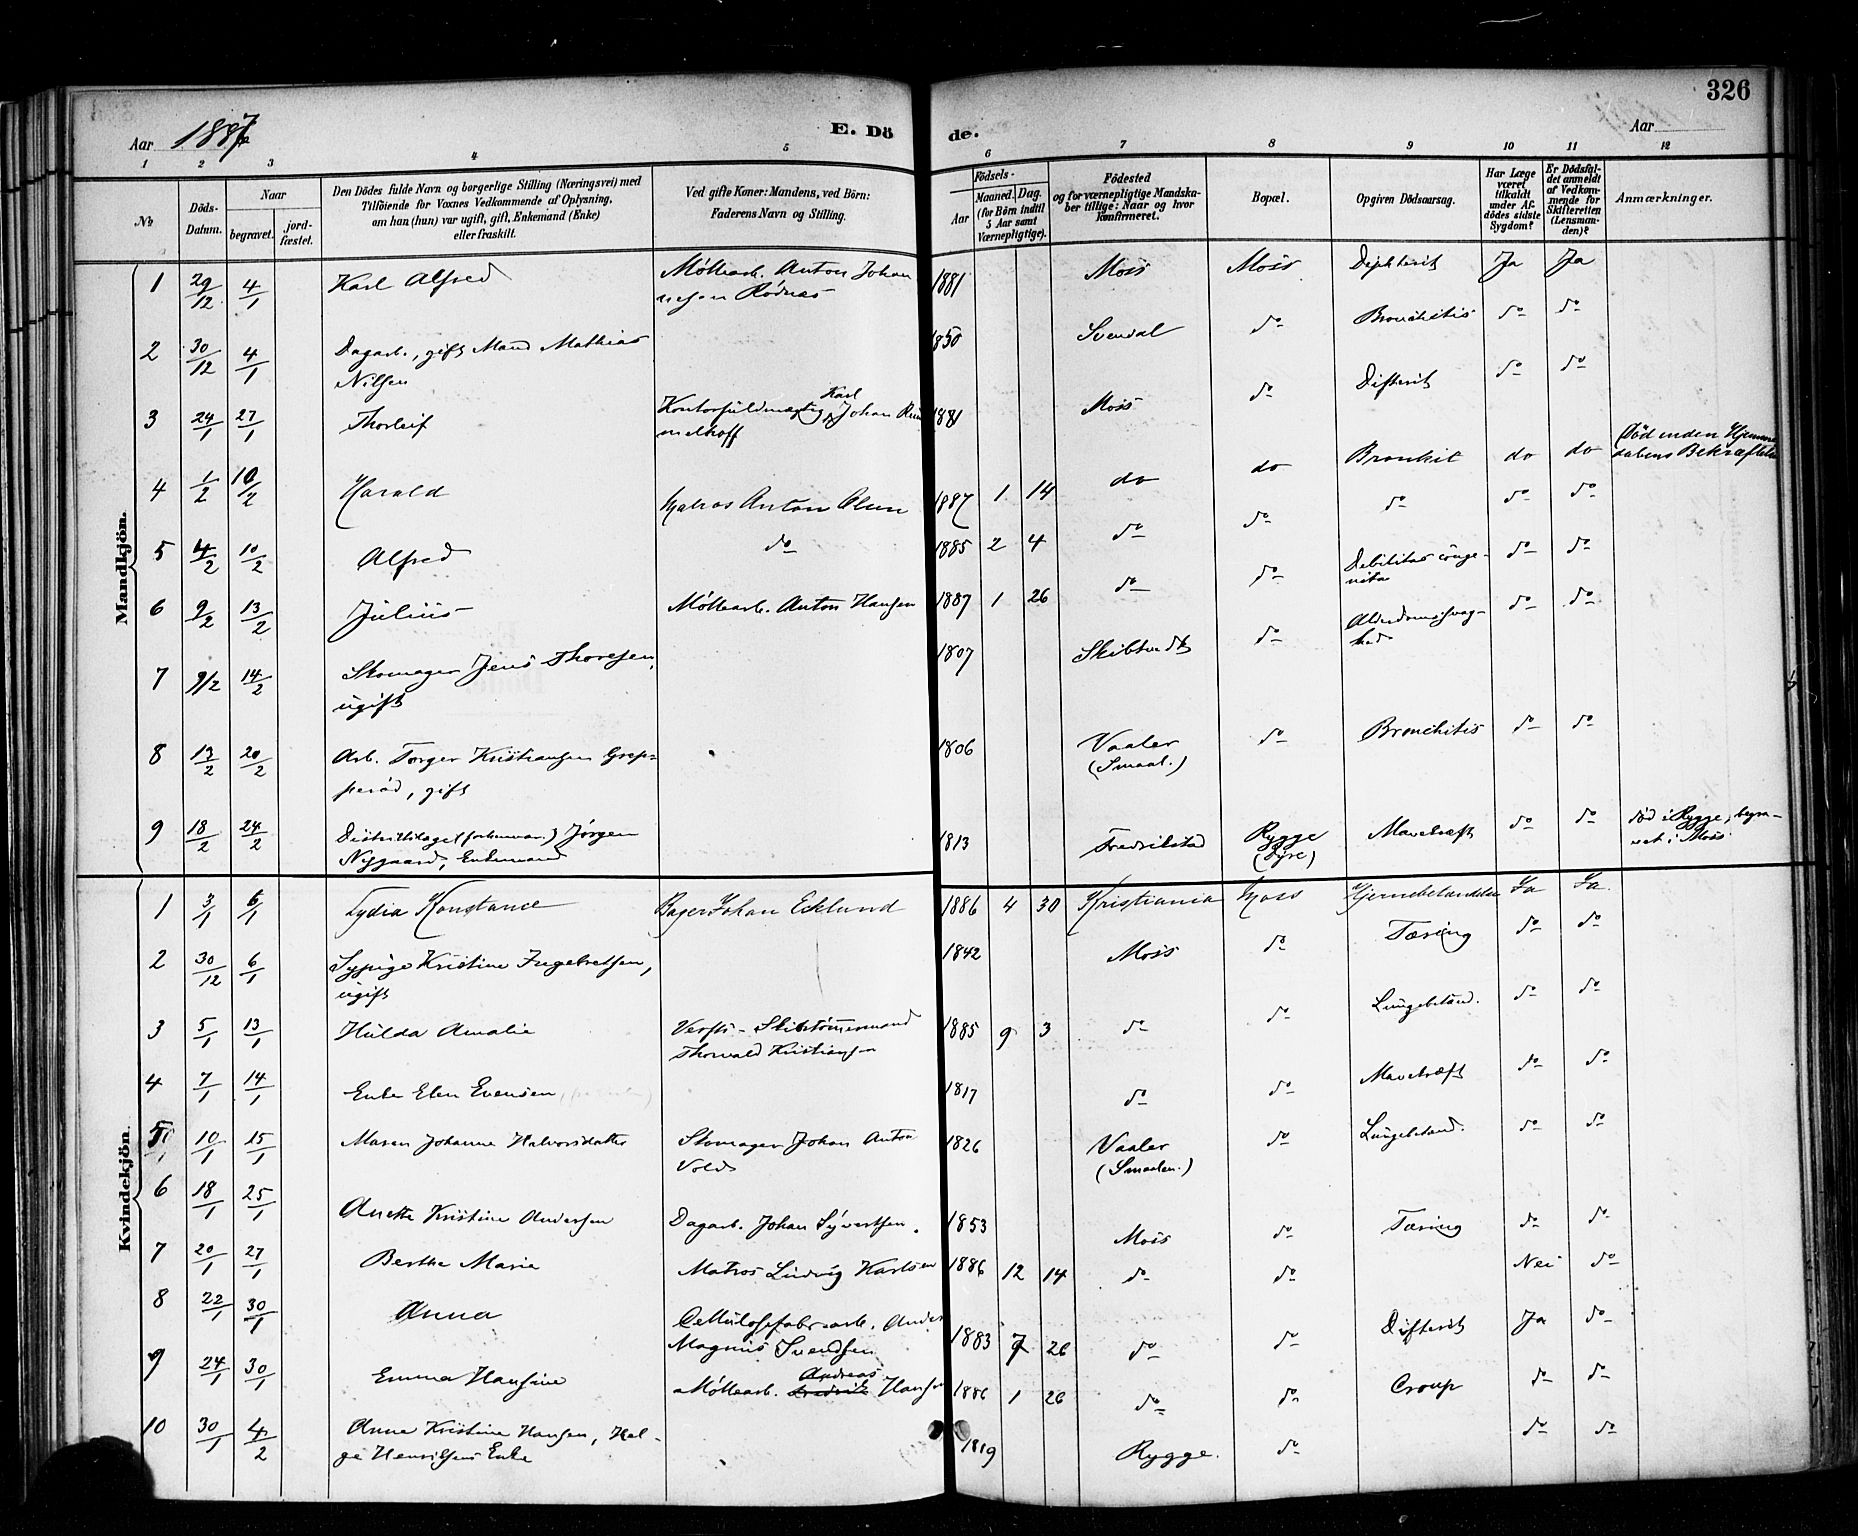 326
Aar 1887
E. Dö de.
Aar
1 2 3 4 5 6 7 8 9 10 11 12
No
Döds-Datum.
Naar
begravet.
jord-fæstet.
Den Dödes fulde Navn og borgerlige Stilling (Næringsvei) med
Tilföiende for Voxnes Vedkommende af Oplysning,
om han (hun) var ugift, gift, Enkemand (Enke)
eller fraskilt.
Ved gifte Koner: Mandens, ved Börn:
Faderens Navn og Stilling.
Födsels-
Aar
Maaned. Dag.
(for Börn indtil
5 Aar samt
Værnepligtige).
Födested
og for værnepligtige Mandska-
ber tillige: Naar og hvor
konfirmeret.
Bopæl.
Opgiven Dödsaarsag.
Har Læge
været
tilkaldt
under Af-
dödes sidste
Sygdom?
Er Dödsfal-
det anmeldt
af Vedkom-
mende for
Skifteretten
(Lensman-
den)?
Anmærkninger.
Mandkjön.
1 29/12 4/1 Karl Alfred Møllearb. Anton Johan 1881 Moss Moss Diphterit Ja Ja
nesen Rødnæs
2 30/12 4/1 Dagarb., gift Mand Mathias 1850 Svendal do Bronchitis do do
Nilsen
3 24/1 27/1 Thorleif Kontorfuldmægtig Karl Johan 1881 Moss do Difterit do do
melhoff
4 1/2 10/2 Harald Matros Anton Olsen 1887 1 14 do do Bronkit do do Död uden Hjemme
daabens Bekræftelse
5 4/2 10/2 Alfred do 1885 2 4 do do do do do
6 9/2 13/2 Julius Møllearb. Anton Hansen 1887 1 26 do do Debilitas conge-
nita do do
7 9/2 14/2 Skomager Jens Thoresen, 1807 Skibtvedt do Alderdomssvag-
hed do do
ugift
8 13/2 20/2 Arb. Torger Kristiansen Grep- 1806 Vaaler do Bronchitis do do
perød, gift (Smaal.)
9 18/2 24/2 Distriktslæge (forhenvær.) Jørgen 1813 Fredrikstad Rygge Mavekræft do do død i Rygge, begra-
Nyggaard, Enkemand (Dyre) vet i Moss
Kvindekjön.
1 3/1 6/1 Lydia Konstance Bager Johan Ecklund 1886 4 30 Kristiania Moss Hjernebetændelse Ja Ja.
2 30/12 6/1 Sypige Kristine Ingebretsen, 1842 Moss do Tæring do do
ugift
3 5/1 13/1 Hulda Amalie Verfts-Skibstømmermand 1885 9 3 do do Lungebetænd. do do
Thorvald Kristiansen
4 7/1 14/1 Enke Elen Evensen 1817 do do Mavekræft do do
5 10/1 15/1 Maren Johanne Halvorsdatter Skomager Johan Anton 1826 Vaaler do Lungebetænd. do do
Vold (Smaalen.)
6 18/1 25/1 Anette Kristine Andersen Dagarb. Johan Syvertsen. 1853 Moss do Tæring do do
7 20/1 27/1 Berthe Marie Matros Ludvig Karlsen 1886 12 14 do do Nei do
8 22/1 30/1 Anna Cellulosefabr.arb. Anders 1883 7 26 do do Difterit Ja do
Magnus Svendsen
9 24/1 30/1 Emma Hansine Møllearb. Fredrik Andreas Hansen 1886 1 26 do do Croup do do
10 30/1 4/2 Anna Kristine Hansen, Hel- 1819 Rygge. do do do
ge Henriksens Enke